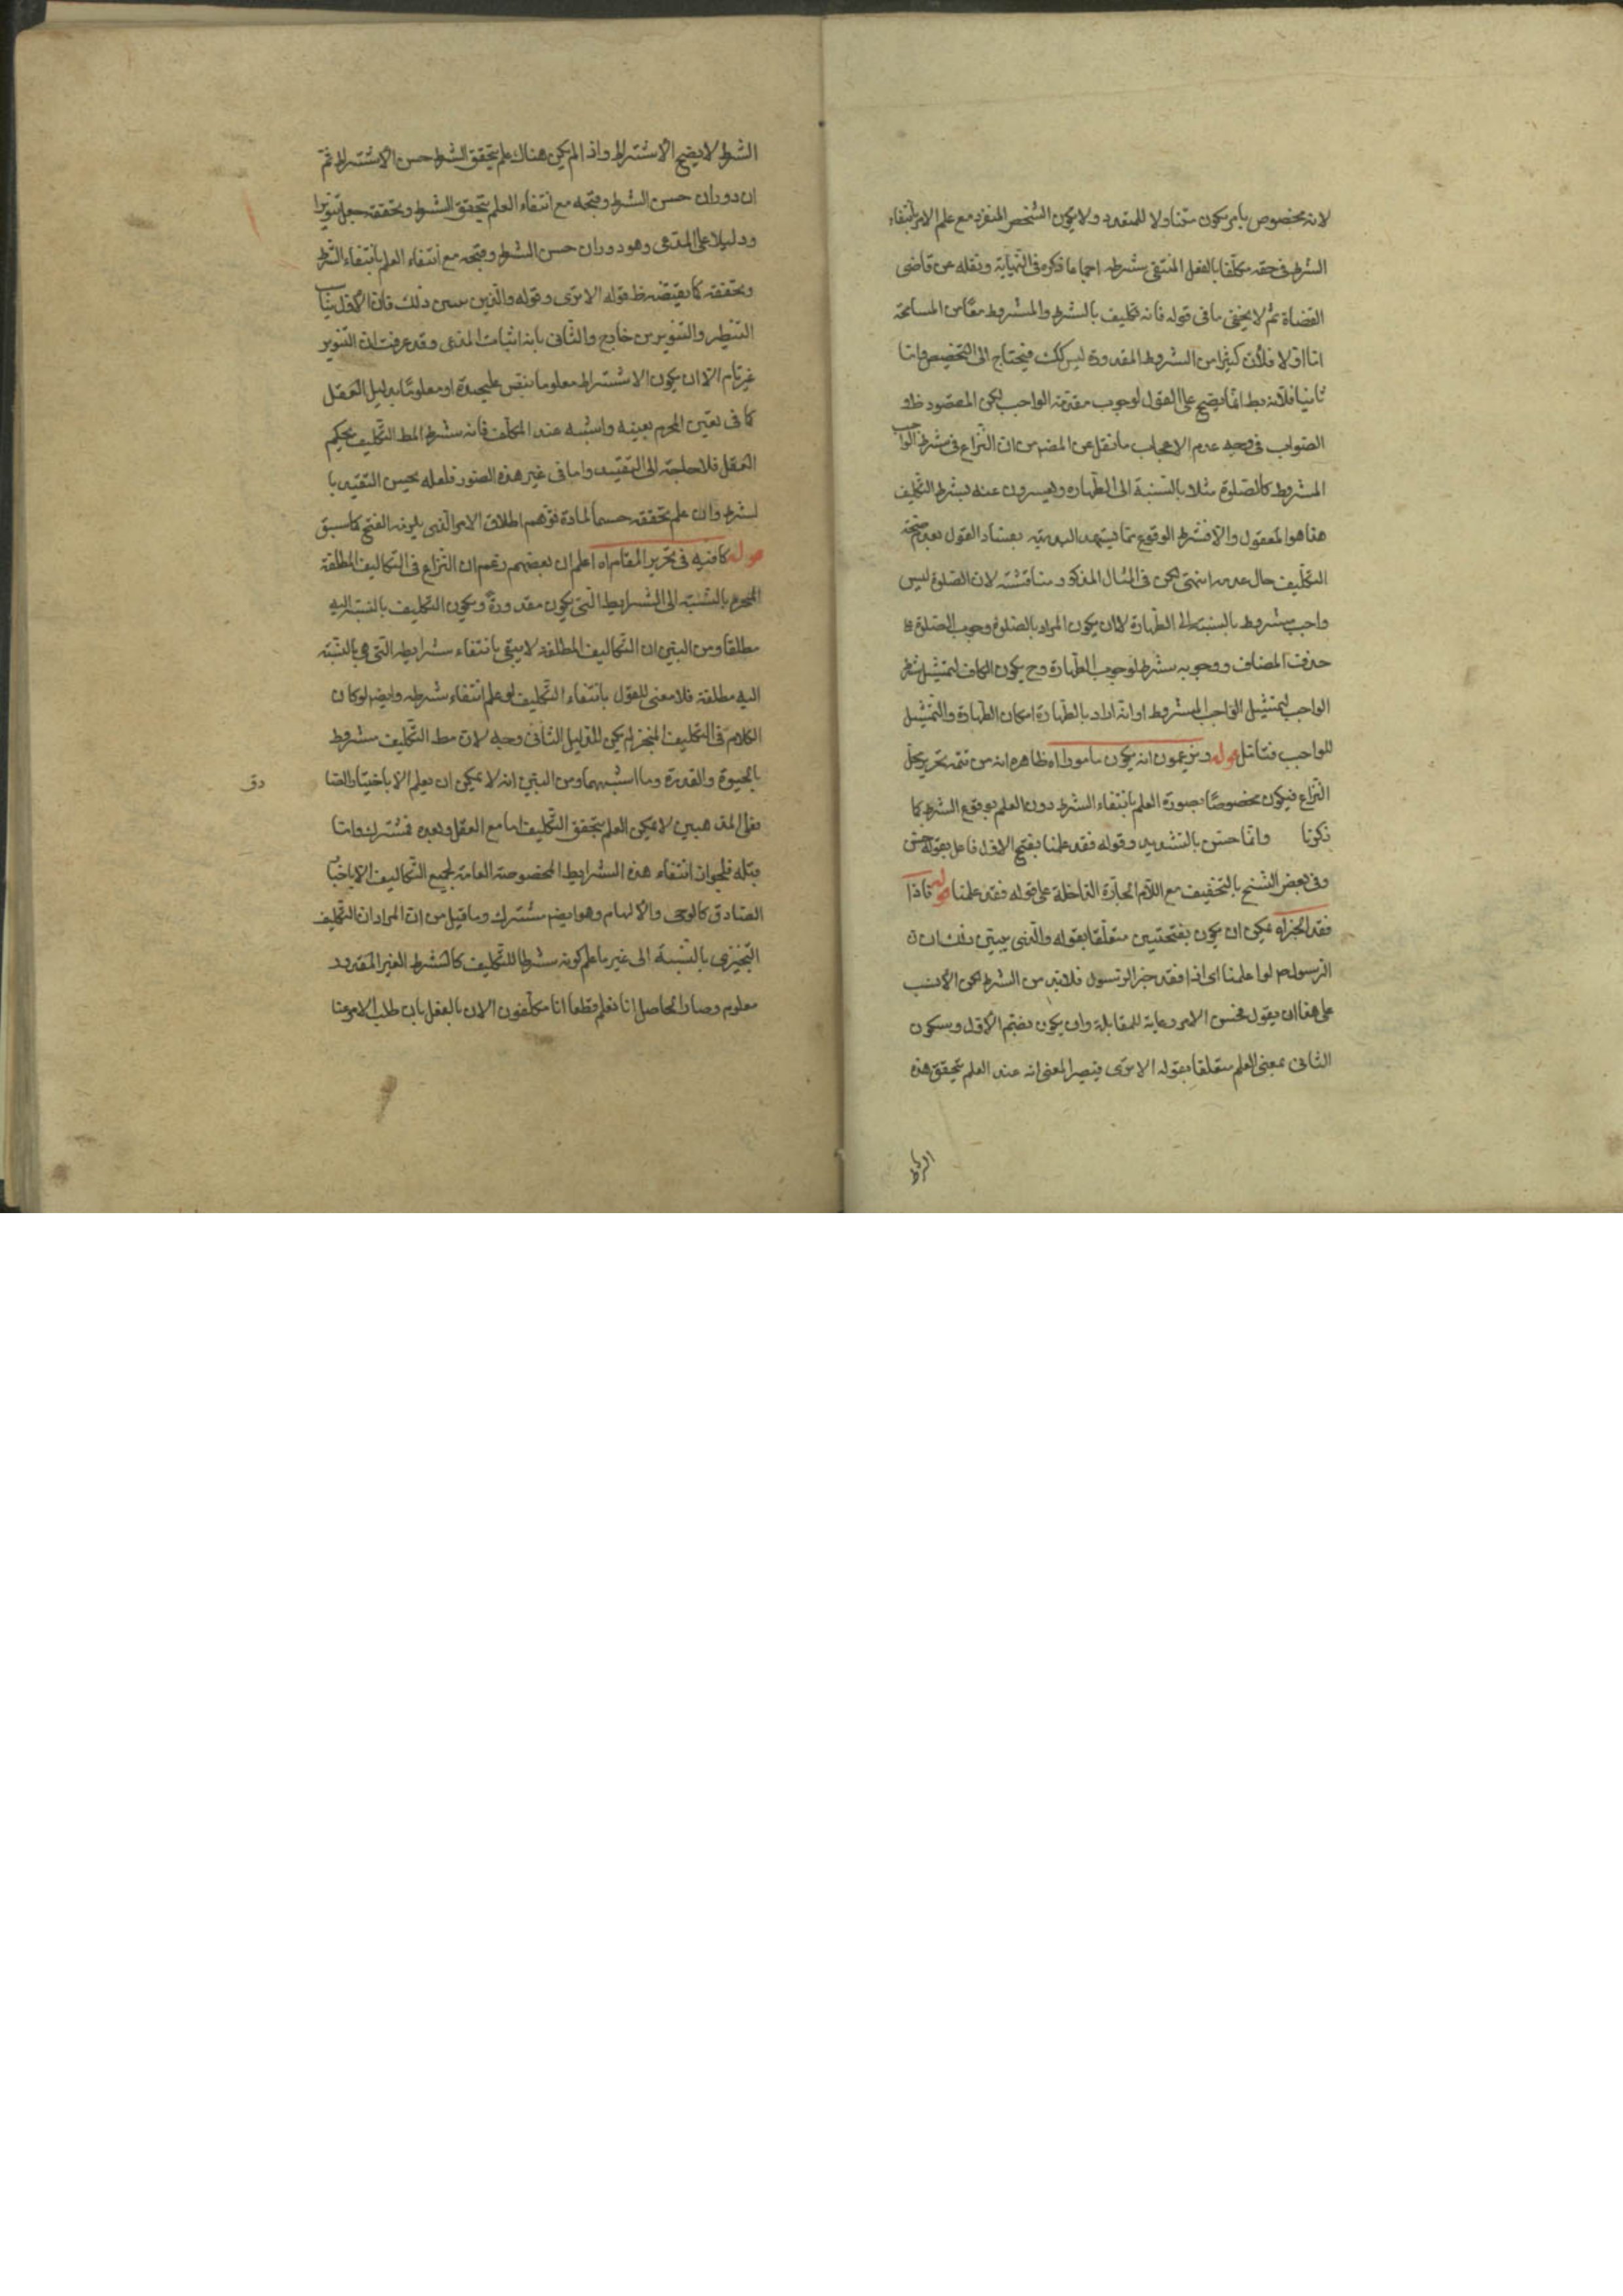 لانه مخصوص بامر يكون متناولا للمتعدد ولا يكون الشخص المنفرد مع علم الامر بانتفاء
الشرط في حقه مكلفا بالفعل المنتفى شرطه اجماعا ذكره في النهاية ونقله عن قاضى
القضاة ثم لا يخفى ما في قوله فانه تكليف بالشرط والمشروط معا من المسامحة
اما اولا فلان كثيرا من الشروط المقدورة ليس كك فيحتاج الى التخصيص واما
ثانيا فلانه انما يصح على القول لوجوب مقدمة الواجب لكن المقصود ظ و
الصواب في وجه عدم الاعجاب ما نقل عن المض من ان النزاع في شرط الواجب
المشروط كالصلوة مثلا بالنسبة الى الطهارة ويعبرون عنه بشرط التكليف
هذا هو المعقول والا فشرط الوقوع مما يشهد البديهة بفساد القول بعدم صحة
التكليف حال عدمه انتهى لكن في المثال المذكور مناقشة لان الصلوة ليس
واجب مشروط بالنسبة الى الطهارة الا ان يكون المراد بالصلوة وجوب الصلوة
حذف المضاف ووجوبه شرط لوجوب الطهارة وح يكون الكاف لتمثيل شرط
الواجب لتمثيل الواجب المشروط او انه اراد بالطهارة امكان الطهارة والتمثيل
للواجب فتامل قوله ويزعمون انه يكون مامورا اه ظاهره انه من تتمة تحرير محل
النزاع فيكون مخصوصا بصورة العلم بانتفاء الشرط دون العلم بوقوع الشرط كما
ذكرنا وانما حسن بالتشديد وقوله فقد علمنا بفتح الاول فاعل بقوله حسن
وفي بعض النسخ بالتخفيف مع اللام الجارة الداخلة على قوله فقد علمنا قوله فاذا
فقد الخبر اه يمكن ان يكون بفتحتين متعلقا بقوله والذى يبين ذلك ان
الرسول ص لو اعلمنا اى اذا فقد خبر الرسول فلا بد من الشرط لكن الانسب
على هذا ان يقول فحسن الامر رعاية للمقابلة وان يكون بضم الاول وسكون
الثانى بمعنى العلم متعلقا بقوله الا ترى فيصير المعنى انه عند العلم بتحقق هذه
الشرط
الشرط لا يصح الاشتراط واذا لم يكن هناك علم بتحقق الشرط حسن الاشتراط ثم
ان دوران حسن الشرط وقبحه مع انتفاء العلم بتحقق الشرط وتحققه جعل تنويرا
ودليلا على المدعى وهو دوران حسن الشرط وقبحه مع انتفاء العلم بانتفاء الشرط
وتحققه كما يقتضيه ظ قوله الا ترى وقوله والذين يبين ذلك فان الاول يناسب
التنظير والتنوير من خارج والثانى بانه اثبات المدعى وقد عرفت ان التنوير
غير تام الا ان يكون الاشتراط معلوما بنص عليحدة او معلوما بدليل العقل
كما في تعين المحرم بعينه واشبه عند المكلف فانه شرط المط التكليف بحكم
العقل فلا حاجة الى التقييد واما في غير هذه الصور فلعله يحسن التقييد با
لشرط وان علم تحققه حسما لمادة توهم اطلاق الامر الذى يلزمه القبح كما سبق
قوله كافيه في تحرير المقام اه اعلم ان بعضهم زعم ان النزاع في التكاليف المطلقة
بالنسبة الى الشرايط التى يكون مقدورة ويكون التكليف بالنسبة اليه
مطلقا ومن البين ان التكاليف المطلقة لا ينتفى بانتفاء شرايطه التى هى بالنسبة
اليه مطلقة فلا معنى للقول بانتفاء التكليف لو علم انتفاء شرطه وايضا لو كان
الكلام في التكليف المنجز لم يكن للدليل الثانى وجه لان مط التكليف مشروط
بالحيوة والقدرة وما اشبههما ومن البين انه لا يمكن ان يعلم الا باخبار الصا
دق
فعلى المذهبين لا يمكن العلم بتحقق التكليف اما مع العقل وبعده فمشترك واما
قبله فلجواز انتفاء هذه الشرايط المخصوصة العامة لجميع التكاليف الا باخبار
الصادق كالوحى والالهام وهو ايضا مشترك وما قيل من ان المراد ان التكليف
التنجيزى بالنسبة الى غير ما علم كونه شرطا للتكليف كالشرط الغير المقدور
معلوم وصار الحاصل انا نعلم قطعا انا مكلفون الان بالفعل بان طلب الامر منا